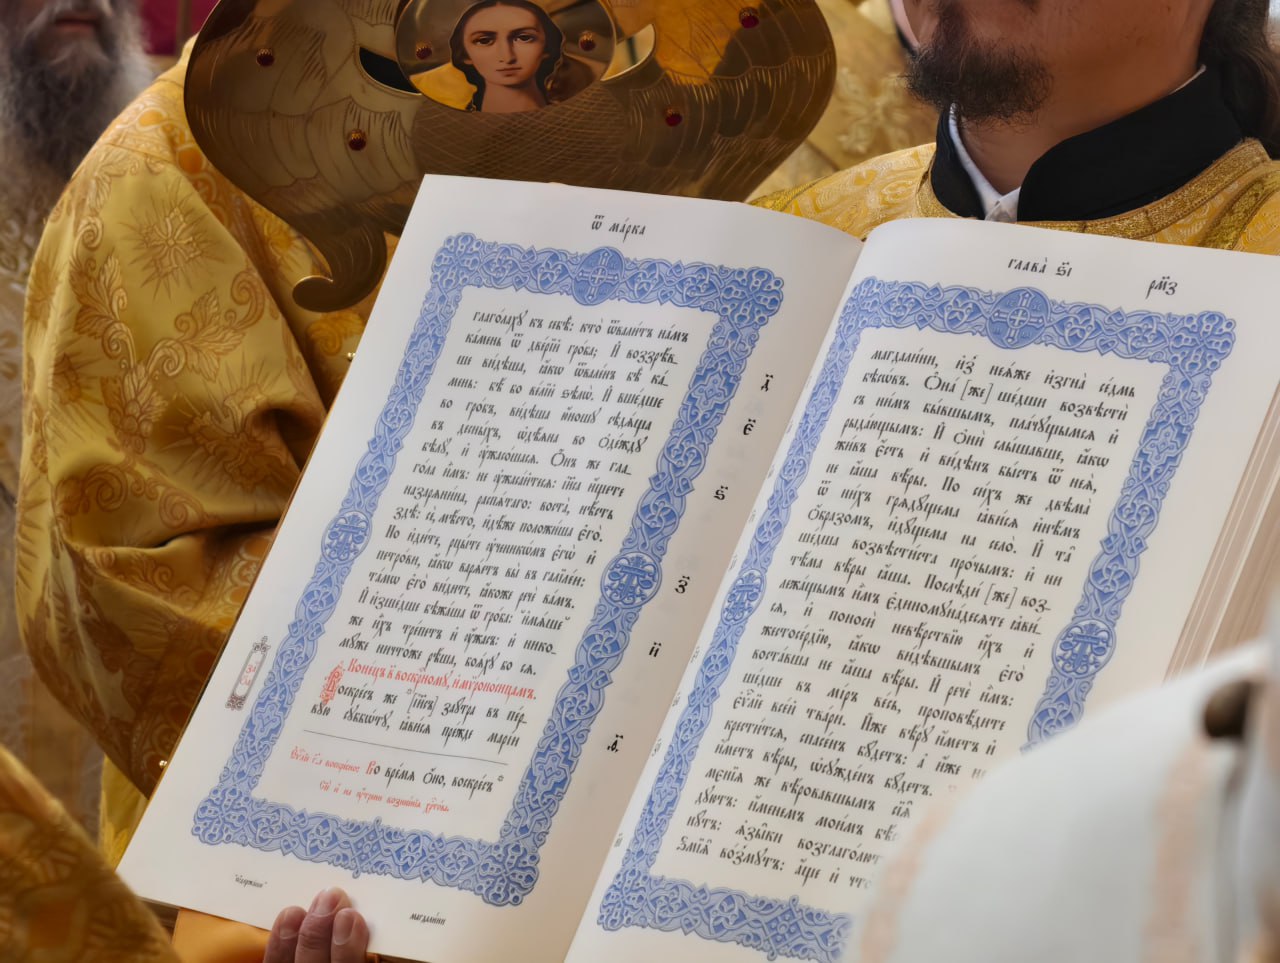 Ѿ ма́рка
глаго́лахꙋ къ себѣ̀: кто̀ ѿвали́тъ на́мъ
ка́мень ѿ две́рїй гро́ба; И҆ воззрѣ́в-
шѐ ви́дѣша, ꙗ҆́кѡ ѿвале́нъ бѣ̀ ка́-
мень: бѣ́ бо ве́лїй ѕѣлѡ̀. И҆ вше́дше
во гро́бъ, ви́дѣша ю҆́ношꙋ сѣдѧ́ща
въ десны́хъ, ѡ҆дѣ́ѧна во ѻ҆де́ждꙋ
бѣ́лꙋ, и҆ ᲂу҆жасо́шасѧ. Ѻ҆́нъ же гла-
го́ла и҆̀мъ: не ᲂу҆жаса́йтесѧ: і҆и҃са и҆́щете
назарѧни́на, распѧ́таго: воста̀, нѣ́сть
здѣ̀: сѐ, мѣ́сто, и҆дѣ́же положи́ша є҆го̀.
Но и҆ди́те, рцы́те ᲂу҆ченикѡ́мъ є҆гѡ̀ и҆
петро́ви, ꙗ҆́кѡ варѧ́етъ вы̀ въ галїле́и:
та́мѡ є҆го̀ ви́дите, ꙗ҆́коже речѐ ва́мъ.
И҆ и҆зше́дшѧ бѣжа́ша ѿ гро́ба: и҆мѧ́ше
же и҆̀хъ тре́петъ и҆ ᲂу҆́жасъ: и҆ нико-
мꙋ́же ничто́же рѣ́ша, боѧ́хꙋ бо сѧ.
Коне́цъ к҃ воскр҇номꙋ, и҆ мѷроно́сицамъ.
Воскре́съ же [і҆и҃съ] заꙋ́тра въ пе́р-
вꙋю сꙋббѡ́тꙋ, ꙗ҆ви́сѧ пре́жде марі́и
Во вре́мѧ ѻ҆́но, воскре́съ
магдали́ни
д҃
є҃
ѕ҃
з҃
и҃
ѳ҃
глава̀ ѕ҃і
рм҃з
магдали́ни, и҆з̾ неѧ́же и҆згна̀ се́дмь
бѣсѡ́въ. Ѻ҆на́ [же] ше́дши возвѣстѝ
съ ни́мъ бы́вшымъ, пла́чꙋщымсѧ и҆
рыда́ющымъ: И҆ ѻ҆нѝ слы́шавше, ꙗ҆́кѡ
жи́въ є҆́сть и҆ ви́дѣнъ бы́сть ѿ неѧ̀,
не ꙗ҆́ша вѣ́ры. По си́хъ же двѣма̀
ѿ ни́хъ грѧдꙋ́щема ꙗ҆ви́сѧ и҆нѣ́мъ
ѻ҆́бразомъ, и҆дꙋ́щема на село̀. И҆ та̑
ше́дша возвѣсти́ста про́чымъ: и҆ ни
тѣ́ма вѣ́ры ꙗ҆́ша. Послѣди́ [же] воз-
лежа́щымъ и҆̀мъ є҆диномꙋна́десѧте ꙗ҆ви́-
сѧ, и҆ поносѝ невѣ́рствїю и҆́хъ и҆
жестосе́рдїю, ꙗ҆́кѡ ви́дѣвшымъ є҆го̀
воста́вша не ꙗ҆́ша вѣ́ры. И҆ речѐ и҆̀мъ:
ше́дше въ мі́ръ ве́сь, проповѣ́дите
є҆ѵⷢ҇лїе все́й тва́ри. И҆́же вѣ́рꙋ и҆́метъ и҆
крести́тсѧ, спасе́нъ бꙋ́детъ: а҆ и҆́же не
и҆́метъ вѣ́ры, ѡ҆сꙋжде́нъ бꙋ́детъ.
мє́нїѧ же вѣ́ровавшымъ сїѧ̑
дꙋютъ: и҆́менемъ мои́мъ
нꙋ́тъ: ѧ҆зы̑ки возглаго́лютъ
ѕмїѧ̑ во́змꙋтъ: а҆́ще и҆ что̀